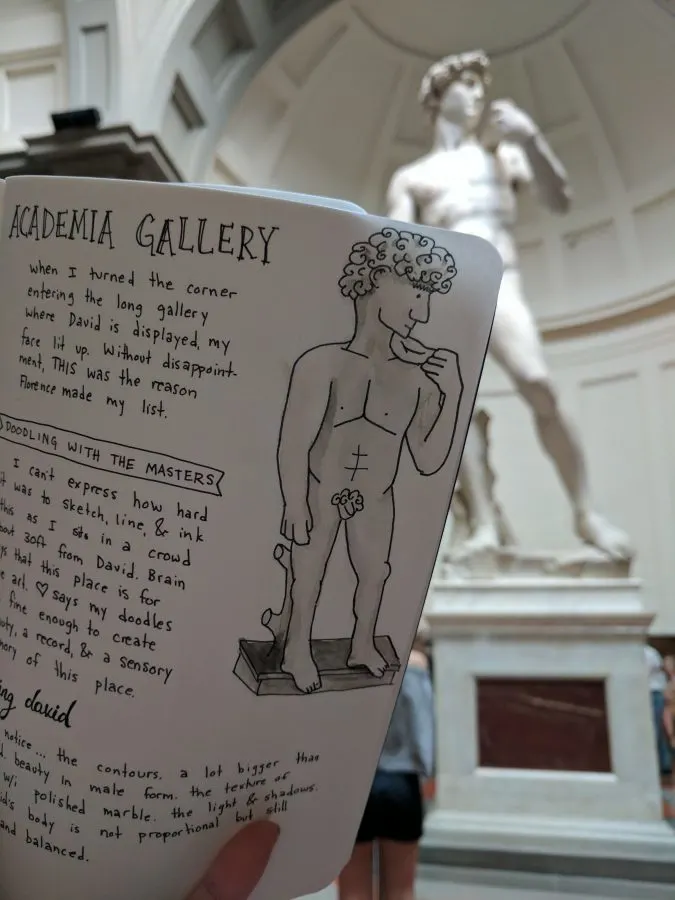 ACADEMIA GALLERY
when I turned the corner
entering the long gallery
where David is displayed, my
face lit up. Without disappoint-
ment, THIS was the reason
Florence made my list.
DOODLING WITH THE MASTERS
I can't express how hard
it was to sketch, line, & ink
this as I sits in a crowd
out 30ft from David. Brain
ys that this place is for
e art. ♡ says my doodles
fine enough to create
uty, a record, & a sensory
mory of this place.
ng david
notice... the contours. a lot bigger than
d. beauty in male form. the texture of
w/i polished marble. the light & shadows.
id's body is not proportional but still
and balanced.